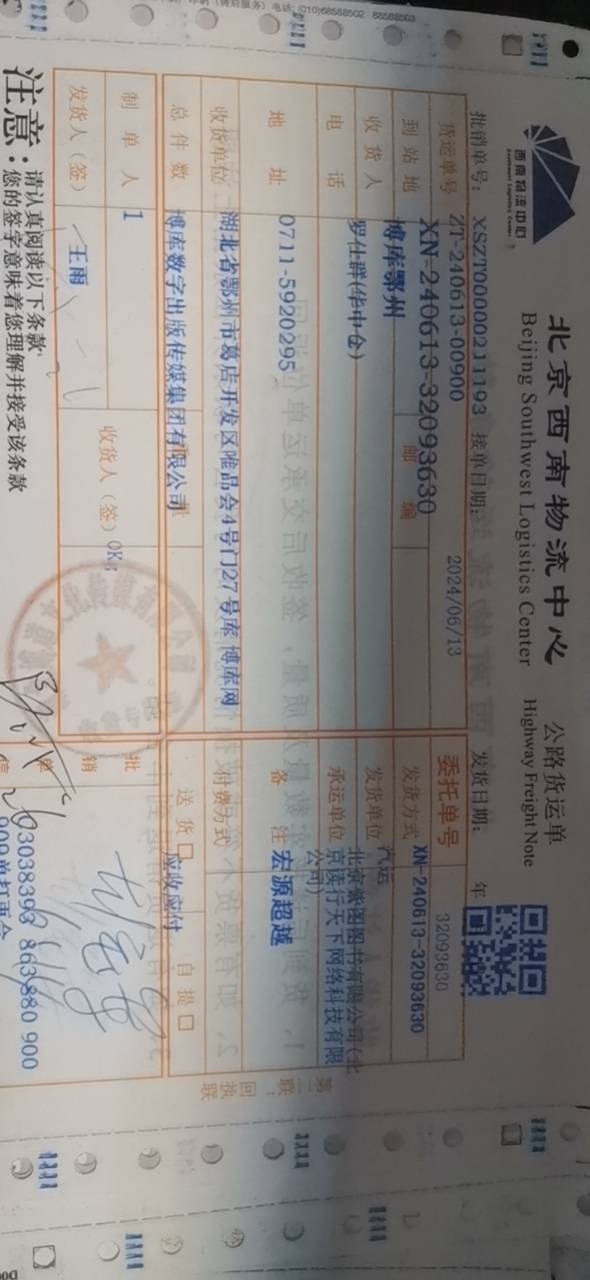 (售后服务) 电话: (010)68588502
西南物流中心
Southwest Logistics Center
北京西南物流中心 公路货运单
Beijing Southwest Logistics Center Highway Freight Note
报销单号: XSZT00000211193 接单日期: 2024/06/13 发货日期: 年
货运单号 ZT-240613-00900
XN-240613-32093630
委托单号 32093630
到站地 博库鄂州 邮编
发货方式 XN-240613-32093630
收货人 罗仕群(华中仓)
发货单位 汽运
电话
承运单位 北京紫图图书有限公司(北京读行天下网络科技有限公司)
地址 0711-5920295
备注 宏源超越
收货单位 湖北省鄂州市葛店开发区唯品会4号门27号库 博库网
付费方式
总件数 博库数字出版传媒集团有限公司
送货 应收应付 自提
制单人 1
收货人(签) 0K
发货人(签) 王雨
批
销
单
93038393 863880 900
第二联:回执联
注意: 请认真阅读以下条款
您的签字意味着您理解并接受该条款